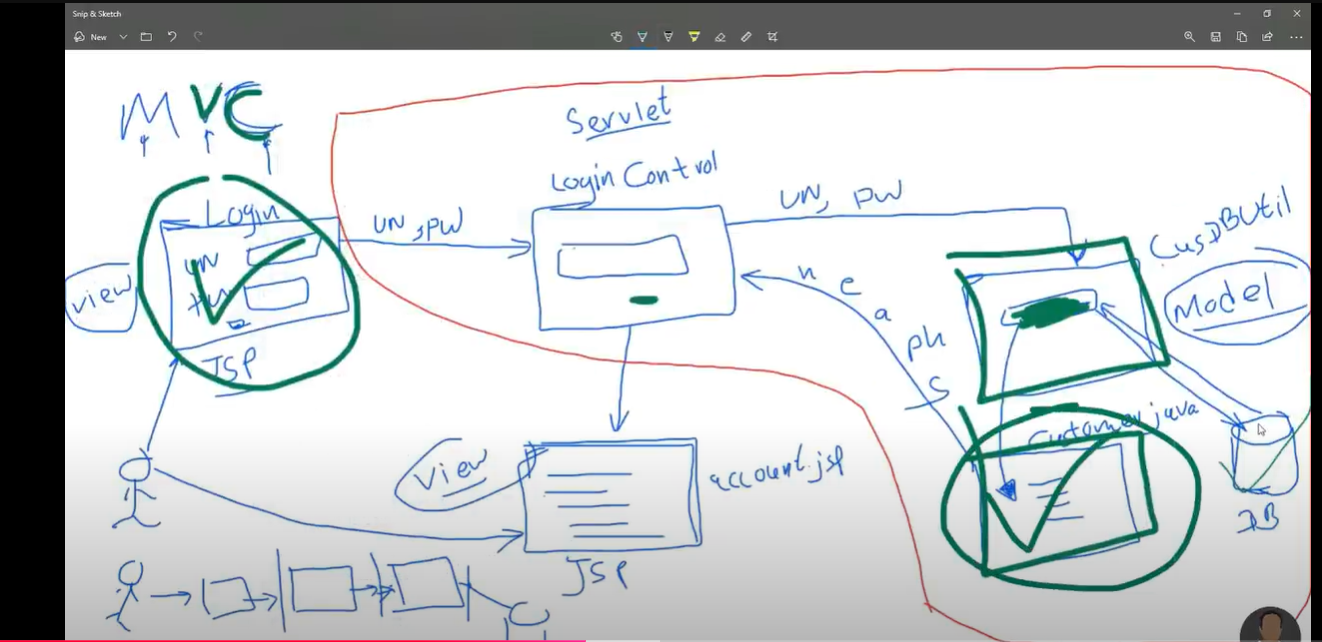 Snip & Sketch
New
MVC
Servlet
Login Control
Login
UN
JSP
view
UN, PW
UN, PW
CusDBUtil
Model
Customer.java
DB
view
account.jsp
JSP